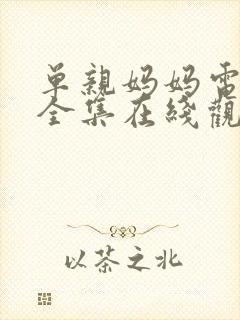 單親妈妈電
全集在綫觀
以茶之北